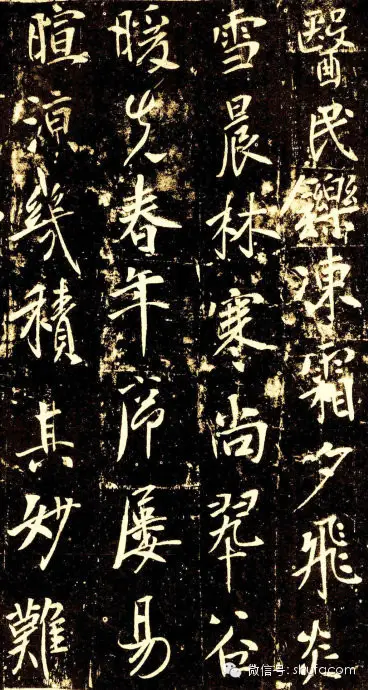 醫民鑠凍霜夕飛炎
雪晨林寒尚翠谷
暖先春年序屢易
暄涼幾積其妙難
微信号: shufacom